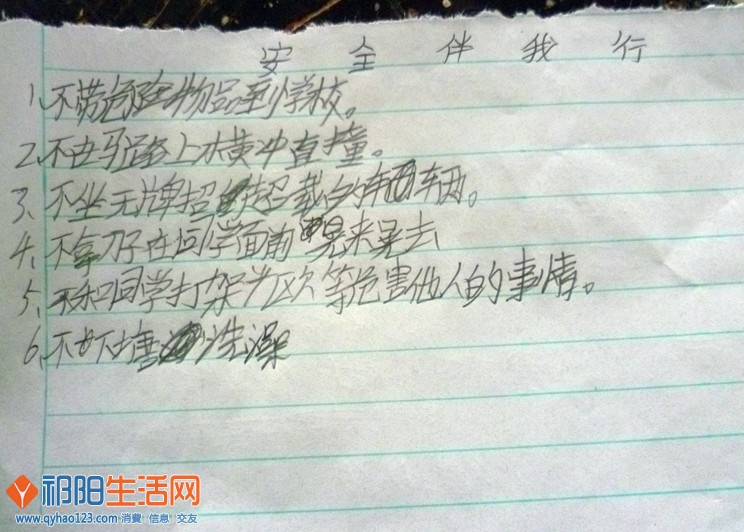 安全伴我行
1、不带危险物品到学校。
2、不在马路上横冲直撞。
3、不坐无牌超超载的车辆。
4、不拿刀子在同学面前晃来晃去
5、不和同学打架斗区欠等危害他人的事情。
6、不下塘洗澡
祁阳生活网
www.qyhao123.com 消費 信息 交友